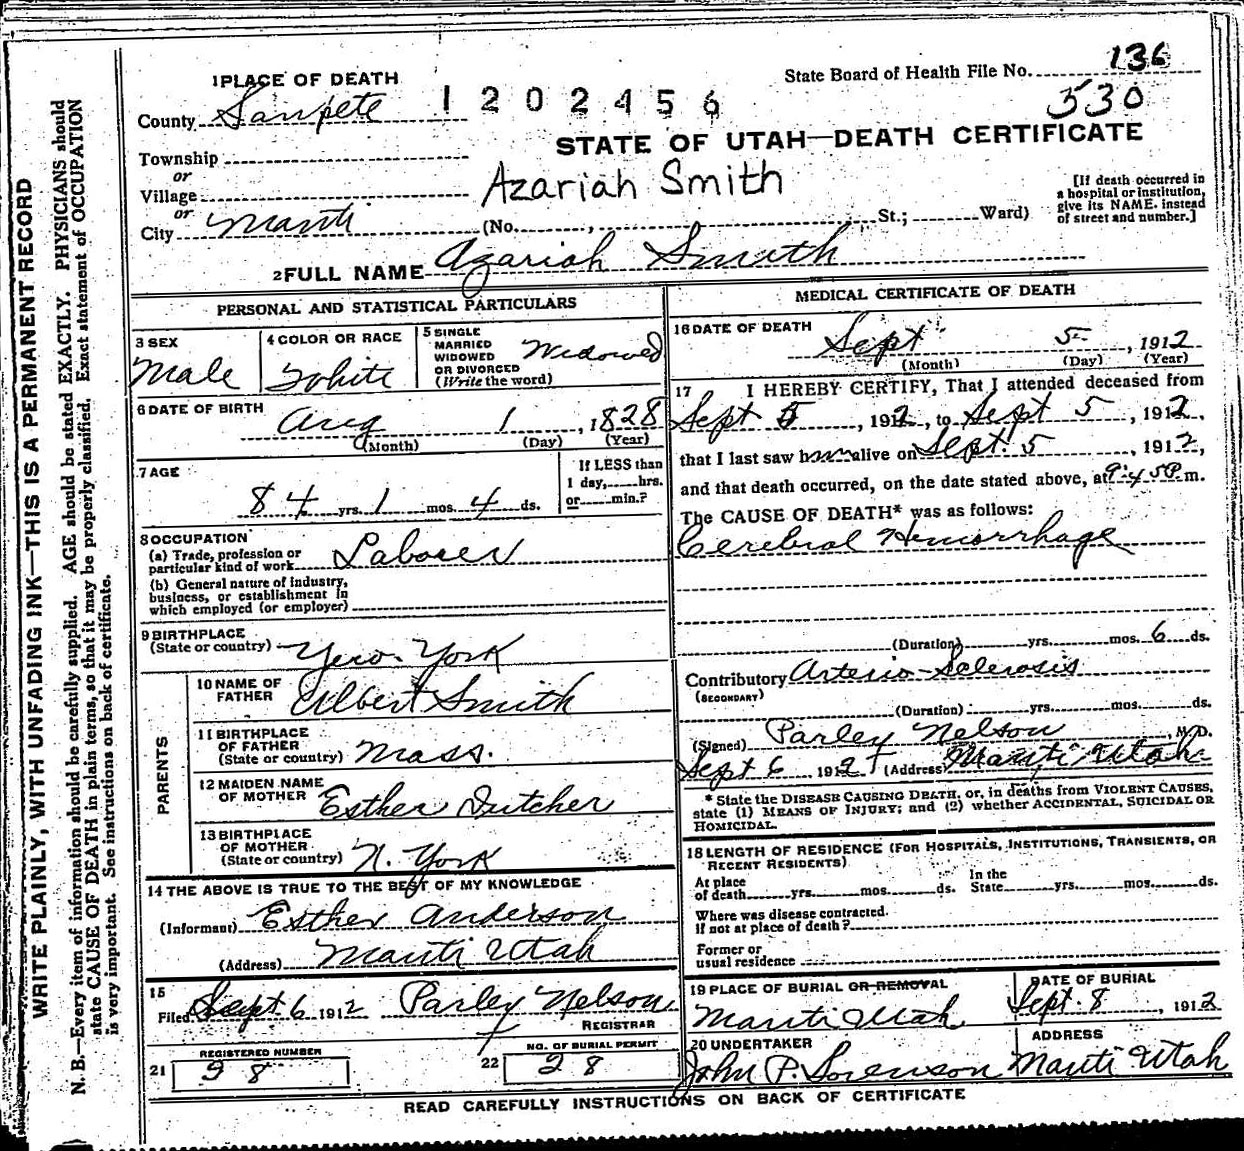 WRITE PLAINLY, WITH UNFADING INK—THIS IS A PERMANENT RECORD
N. B.—Every item of information should be carefully supplied. AGE should be stated EXACTLY. PHYSICIANS should
state CAUSE OF DEATH in plain terms, so that it may be properly classified. Exact statement of OCCUPATION
is very important. See instructions on back of certificate.
1 PLACE OF DEATH
State Board of Health File No. 136
County Sanpete
1202456
530
STATE OF UTAH—DEATH CERTIFICATE
Township
or
Village
Azariah Smith
[If death occurred in
a hospital or institution,
give its NAME. instead
of street and number.]
or
City Manti (No. , St.; Ward)
2 FULL NAME Azariah Smith
PERSONAL AND STATISTICAL PARTICULARS
3 SEX
Male
4 COLOR OR RACE
White
5 SINGLE
MARRIED
WIDOWED
OR DIVORCED
(Write the word)
Widowed
6 DATE OF BIRTH
Aug 1, 1828
(Month) (Day) (Year)
7 AGE
84 yrs. 1 mos. 4 ds.
If LESS than
1 day, hrs.
or min.?
8 OCCUPATION
(a) Trade, profession or
particular kind of work Laborer
(b) General nature of industry,
business, or establishment in
which employed (or employer)
9 BIRTHPLACE
(State or country) New York
PARENTS
10 NAME OF
FATHER Albert Smith
11 BIRTHPLACE
OF FATHER
(State or country) Mass.
12 MAIDEN NAME
OF MOTHER Esther Dutcher
13 BIRTHPLACE
OF MOTHER
(State or country) N. York
14 THE ABOVE IS TRUE TO THE BEST OF MY KNOWLEDGE
(Informant) Esther Anderson
(Address) Manti Utah
15
Filed Sept 6 1912 Parley Nelson
REGISTRAR
21 REGISTERED NUMBER
28
22 NO. OF BURIAL PERMIT
28
MEDICAL CERTIFICATE OF DEATH
16 DATE OF DEATH
Sept 5, 1912
(Month) (Day) (Year)
17 I HEREBY CERTIFY, That I attended deceased from
Sept 5, 1912, to Sept 5, 1912,
that I last saw him alive on Sept. 5, 1912,
and that death occurred, on the date stated above, at 9:45 P. m.
The CAUSE OF DEATH* was as follows:
Cerebral Hemorrhage
(Duration) yrs. mos. 6 ds.
Contributory Arterio-Sclerosis
(SECONDARY)
(Duration) yrs. mos. ds.
(Signed) Parley Nelson, M.D.
Sept 6 1912 (Address) Manti Utah
* State the DISEASE CAUSING DEATH, or, in deaths from VIOLENT CAUSES,
state (1) MEANS OF INJURY; and (2) whether ACCIDENTAL, SUICIDAL OR
HOMICIDAL.
18 LENGTH OF RESIDENCE (FOR HOSPITALS, INSTITUTIONS, TRANSIENTS, OR
RECENT RESIDENTS)
At place
of death yrs. mos. ds.
In the
State yrs. mos. ds.
Where was disease contracted.
if not at place of death?
Former or
usual residence
19 PLACE OF BURIAL OR REMOVAL
Manti Utah
DATE OF BURIAL
Sept. 8, 1912
20 UNDERTAKER
John P. Sorenson
ADDRESS
Manti Utah
READ CAREFULLY INSTRUCTIONS ON BACK OF CERTIFICATE